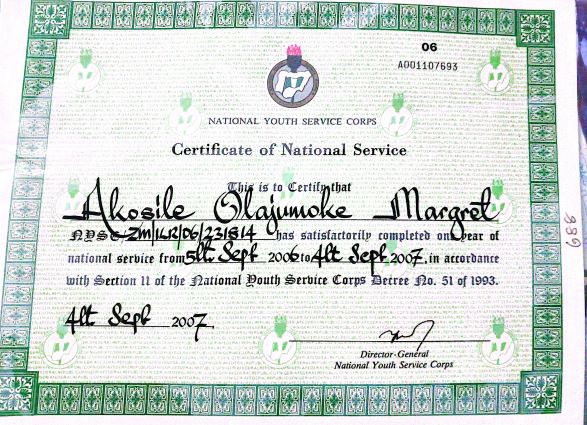 06
A001107693
NATIONAL YOUTH SERVICE CORPS
Certificate of National Service
This is to Certify that
Akosile Olajumoke Margret
NYSC ZM/ILR/06/231814 has satisfactorily completed one year of
national service from 5th Sept 2006 to 4th Sept 2007, in accordance
with Section 11 of the National Youth Service Corps Decree No. 51 of 1993.
4th Sept 2007.
Director-General
National Youth Service Corps
989